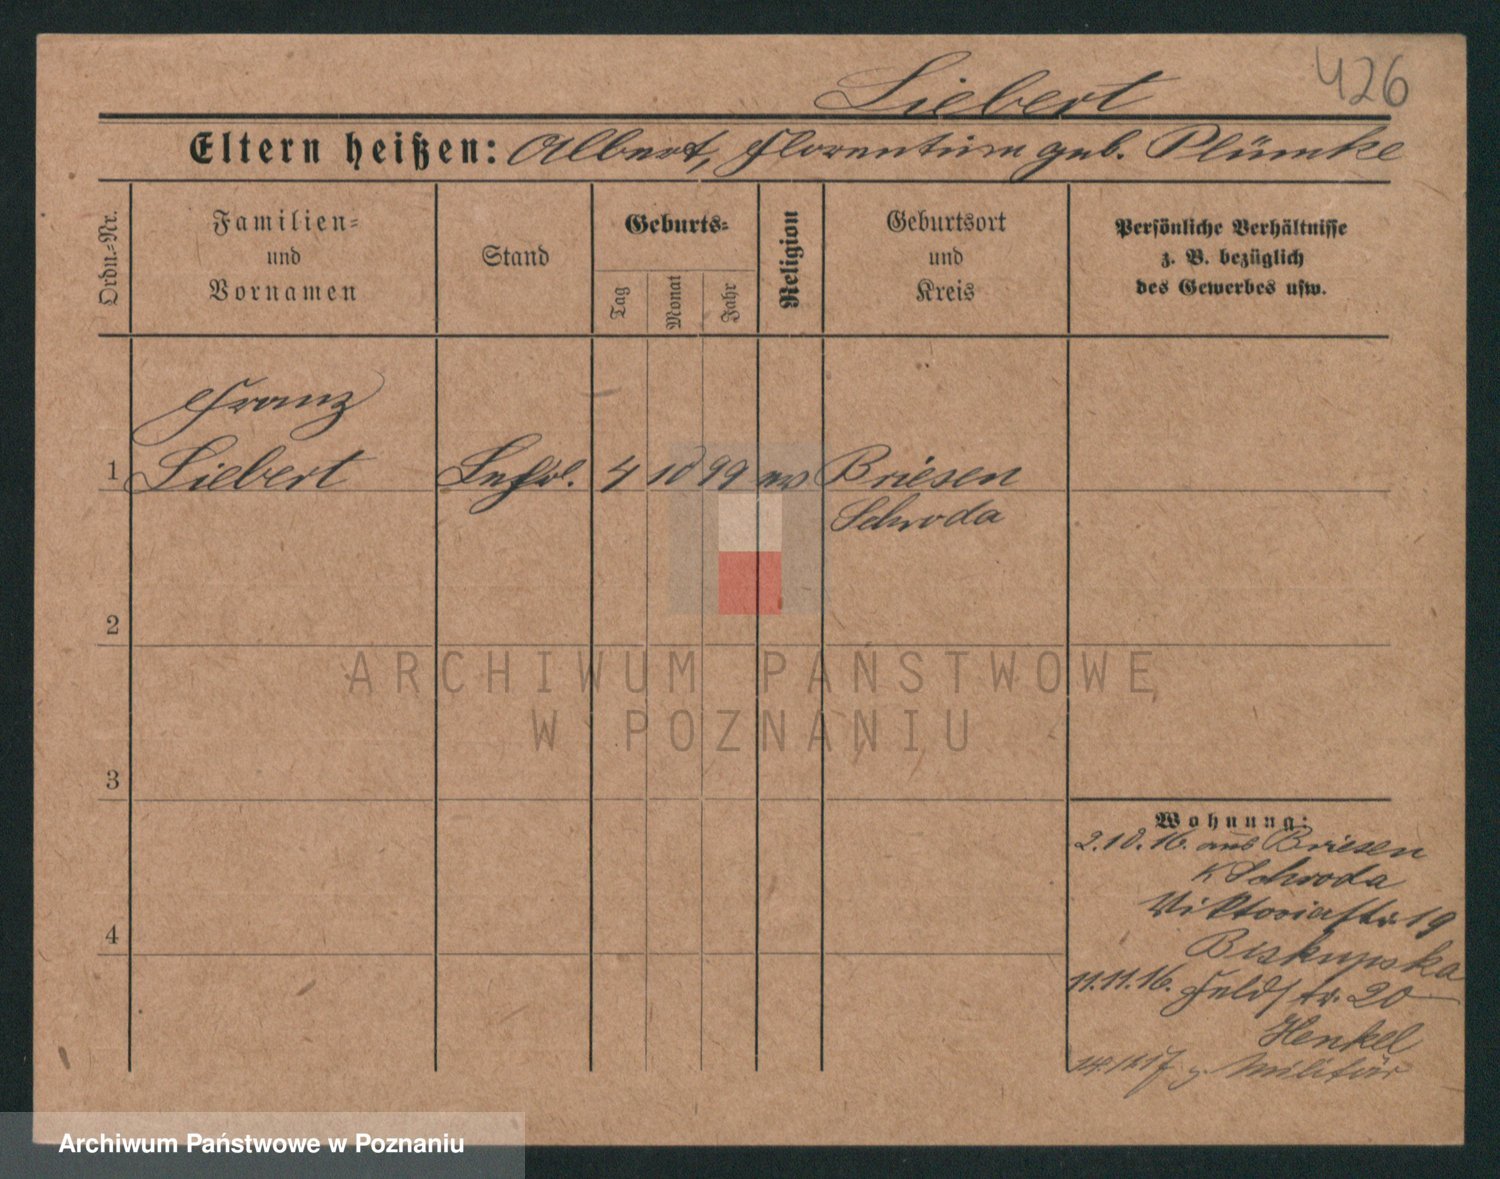 426
Liebert
Eltern heißen: Albert, Florentine geb. Plümke
Ordn.-Nr.
Familien-
und
Vornamen
Stand
Geburts-
Tag
Monat
Jahr
Religion
Geburtsort
und
Kreis
Persönliche Verhältnisse
z. B. bezüglich
des Gewerbes usw.
Franz
1 Liebert 4 10 99 ev Briesen
Schroda
2
3
4
Wohnung:
2.10.16. aus Briesen
K Schroda
Viktoriastr. 19
Biskupska
11.11.16. Feldstr. 20
Henkel
z. Militär
ARCHIWUM PAŃSTWOWE
W POZNANIU
Archiwum Państwowe w Poznaniu